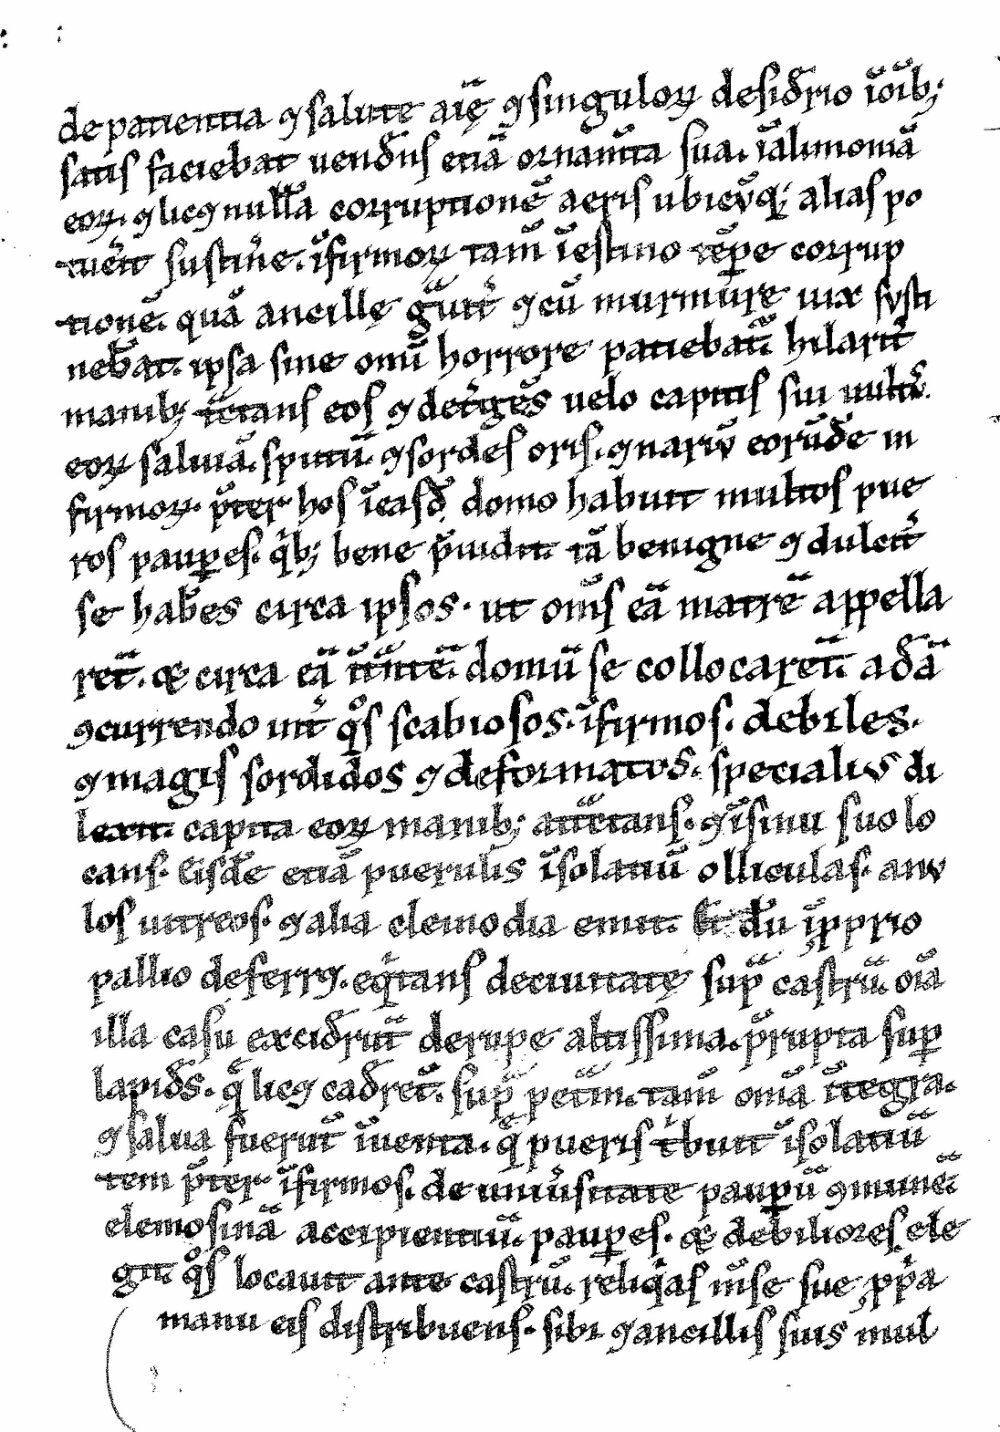 de patientia ꝯ salute aīę ꝯ singuloꝝ desid̄rio īoīb;
satis faciebat uend̄ns etiā ornām̄ta sua. īalimoniā
eoꝝ. ꝯ licꝯ nullā corruptionē aeris ubicūq; alias po
tuer̄it sustin̄e. īfirmoꝝ tam̄ īestiuo tēp̄e corrup
tionē. quā ancillę ḡuit̄ ꝯ cū murmure uix susti
neb̄at. ipsa sine om̄i horrore patiebat̄ hilarit̄
manib; t̄ctans eos ꝯ det̄gēs uelo capitis sui uult̄.
eoꝝ saliuā. sputū. ꝯ sordes oris. ꝯ nariū eorūde in
firmoꝝ. p̄ter hos īeasd̄ domo habuit multos pue
ros paup̄es. q̄b; bene p̄uidit. tā benigne ꝯ dulcit̄
se hab̄es circa ipsos. ut om̄s eā matrē appella
ret̄. ꝯ circa eā īt̄ntē. domū se collocaret̄. ad̄ā
ꝯcurrendo int̄ q̊s scabiosos. īfirmos. debiles.
ꝯ magis sordidos ꝯ deformatos. specialiꝰ di
lexit. capita eoꝝ manib; att̄ctans. ꝯ īsinu suo lo
cans. Eisdē etiā puerulis īsolatiū olliculas. anu
los uitreos. ꝯ alia clemodia emit. Et dū īpprio
pallio deferrꝯ. eq̄tans deciuitatę sup̄ castrū. oīa
illa casu excid̄rūt derupe altissima. p̄rupta sup̄
lapid̄s. q̄ licꝯ cad̄ret̄. sup̄ petm̄. tam̄ om̄a īt̄egra.
ꝯ salua fuerūt īuenta. q̄ pueris t̄buit īsolatiū
tem p̄ter īfirmos. de uniūsitate paup̄ū ꝯmunē
elemosinā accipientiū. paup̄es. ꝯ debiliores ele
git. q̊s locauit ante castrū. reliq̄as m̄se sue p̄p̄a
manu eis distribuens. sibi ꝯ ancillis suis mul